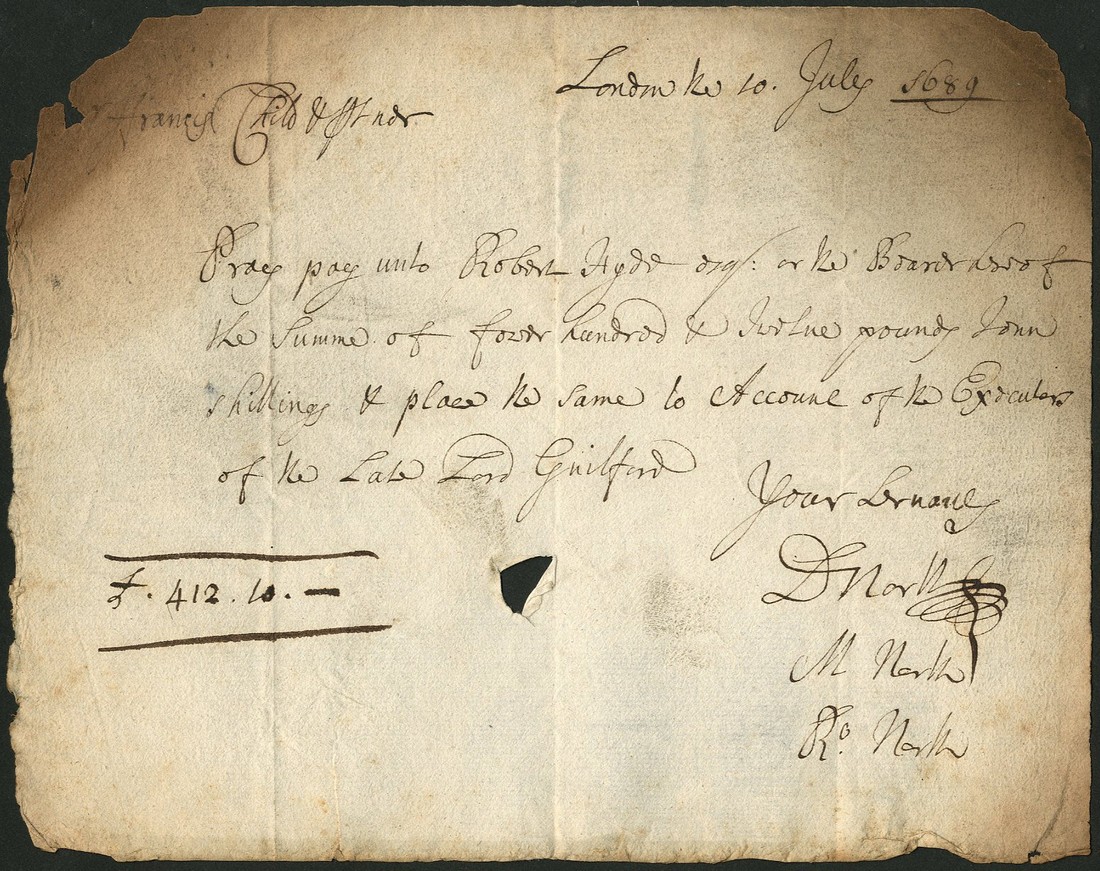 London the 10. July 1689
Francis Child & Ptner
Pray pay unto Robert Hyde esqr: or the Bearer hereof
the Summe of fower hundred & Twelve pounds Tenn
shillings & place the same to Account of the Executors
of the Late Lord Guilford
Your Servants
£. 412. 10. —
D North
M North
Ro. North